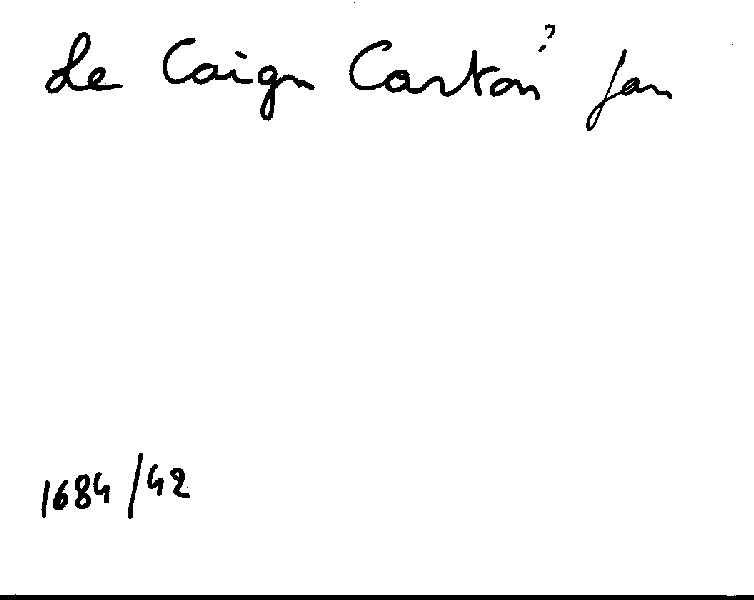 Le Caign Carton? Jan
1684/42